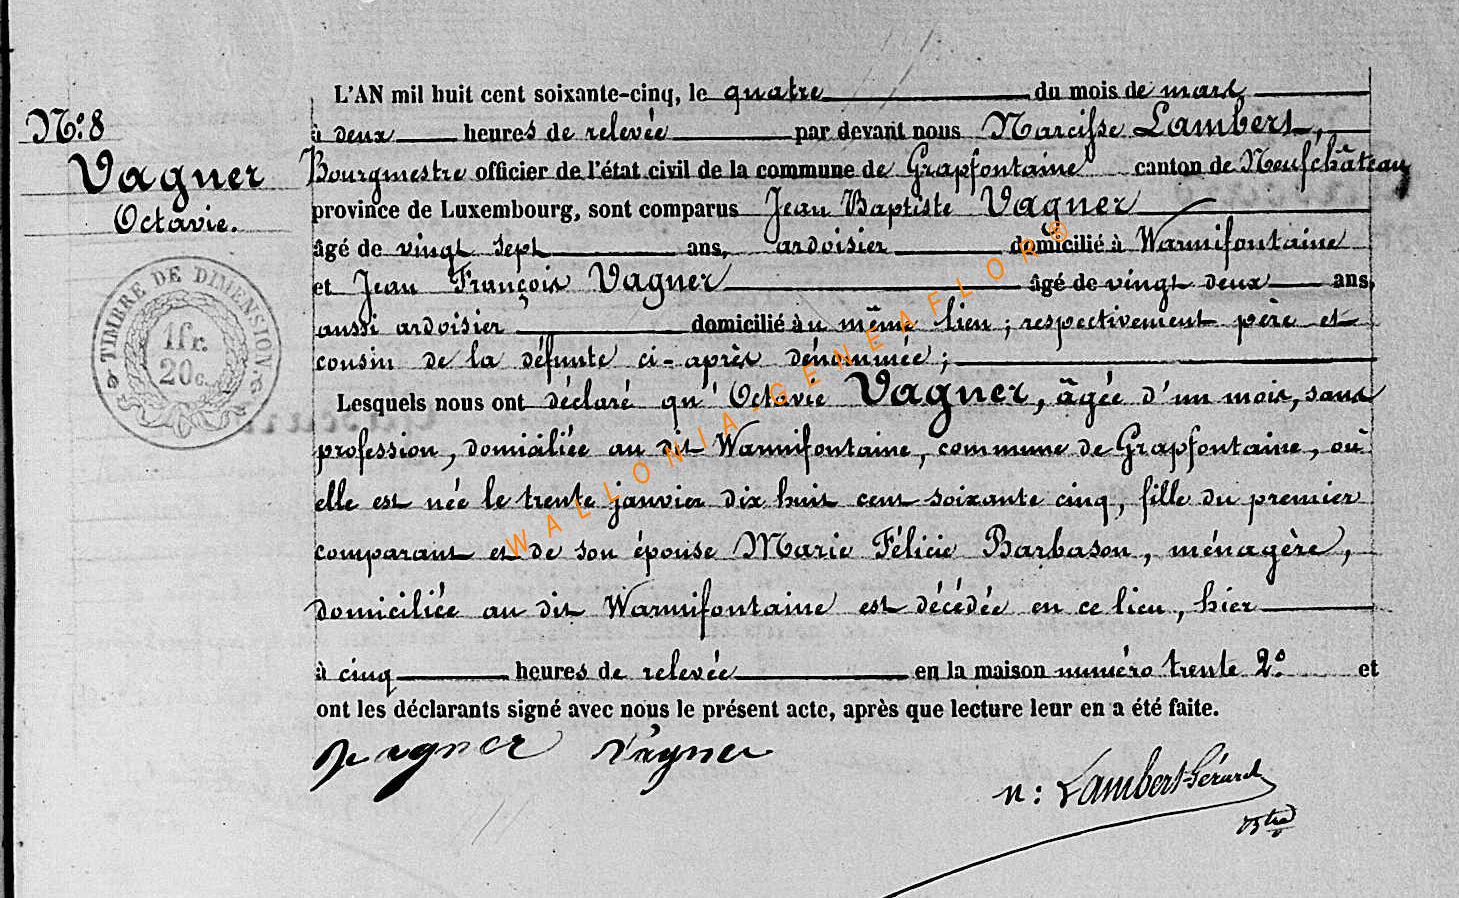 L'AN mil huit cent soixante-cinq, le quatre du mois de mars
N.o 8
à deux heures de relevée par devant nous Narcisse Lambert,
Vagner
Bourgmestre officier de l'état civil de la commune de Grapfontaine canton de Neufchâteau
Octavie.
province de Luxembourg, sont comparus Jean Baptiste Vagner
âgé de vingt sept ans, ardoisier domicilié à Warmifontaine
et Jean François Vagner âgé de vingt deux ans,
aussi ardoisier domicilié au même lieu ; respectivement père et
cousin de la défunte ci-après dénommée ;
Lesquels nous ont déclaré qu'Octavie Vagner, âgée d'un mois, sans
profession, domiciliée au dit Warmifontaine, commune de Grapfontaine, où
elle est née le trente janvier dix huit cent soixante cinq, fille du premier
comparant et de son épouse Marie Félicie Barbason, ménagère,
domiciliée au dit Warmifontaine est décédée en ce lieu, hier
à cinq heures de relevée en la maison numéro trente 2.o et
ont les déclarants signé avec nous le présent acte, après que lecture leur en a été faite.
Vagner Vagner
N: Lambert-Gérard
TIMBRE DE DIMENSION
1 fr.
20 c.
WALLONIA-GENEAFLOR®